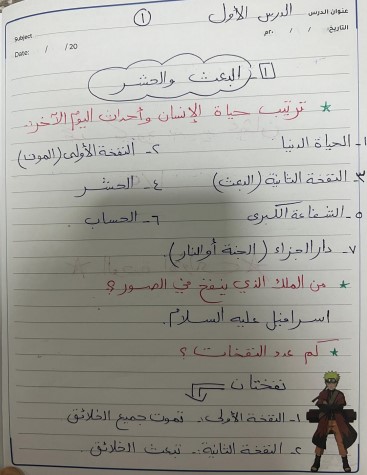 عنوان الدرس الدرس الأول ١ subject
التاريخ: / / م٢٠ Date: / /20
١- البعث والحشر
* ترتيب حياة الإنسان وأحداث اليوم الآخر:-
١- الحياة الدنيا ٢- النفخة الأولى (الموت)
٣- النفخة الثانية (البعث) ٤- الحشر
٥- الشفاعة الكبرى ٦- الحساب
٧- دار الجزاء (الجنة أو النار).
* من الملك الذي ينفخ في الصور؟
اسرافيل عليه السلام.
* كم عدد النفخات؟
نفختان
١- النفخة الأولى:- تموت جميع الخلائق
٢- النفخة الثانية:- تبعث الخلائق